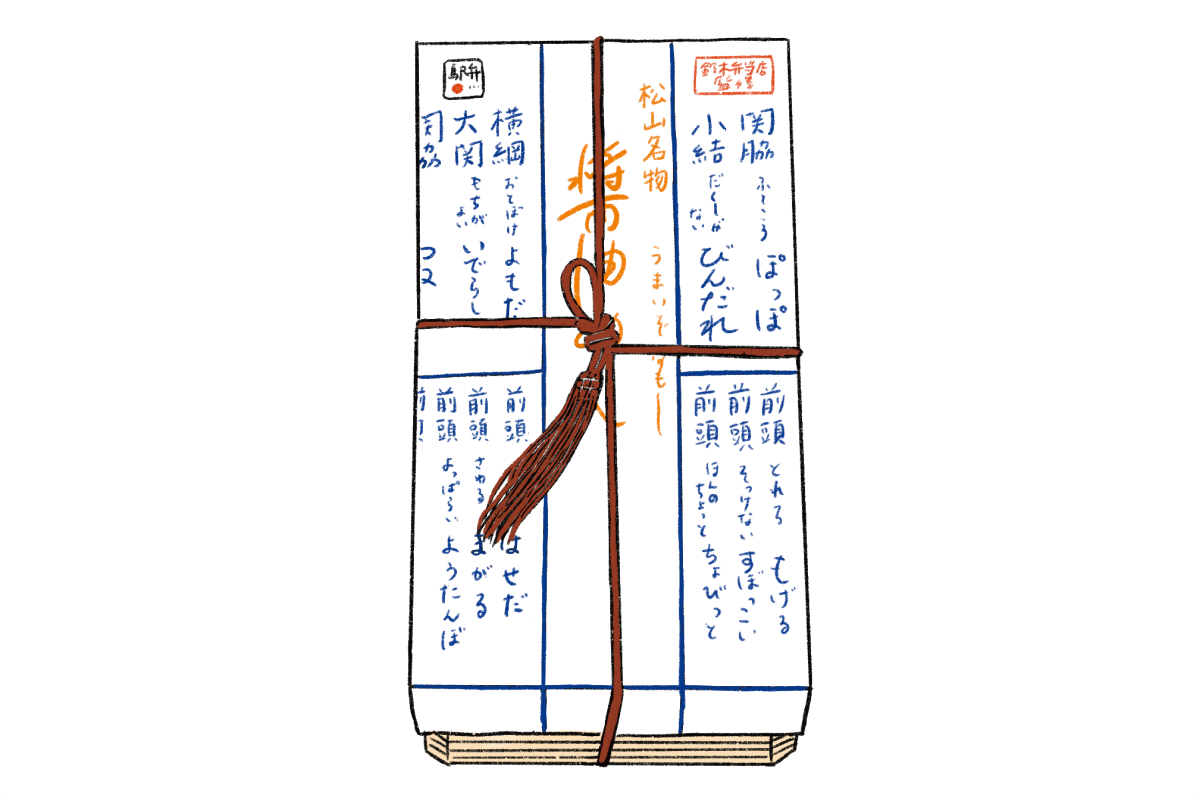 鈴木弁当店
関脇 ふところ ぽっぽ
小結 だらしがない びんだれ
松山名物
うまいぞなもし
醤油めし
駅弁
横綱 おとぼけ よもだ
大関 もちがよい いでらし
関脇
前頭 とれる もげる
前頭 そっけない すぼっこい
前頭 ほんのちょっと ちょびっと
前頭 はせだ
前頭 さわる まがる
前頭 よっぱらい ようたんぼ
前頭